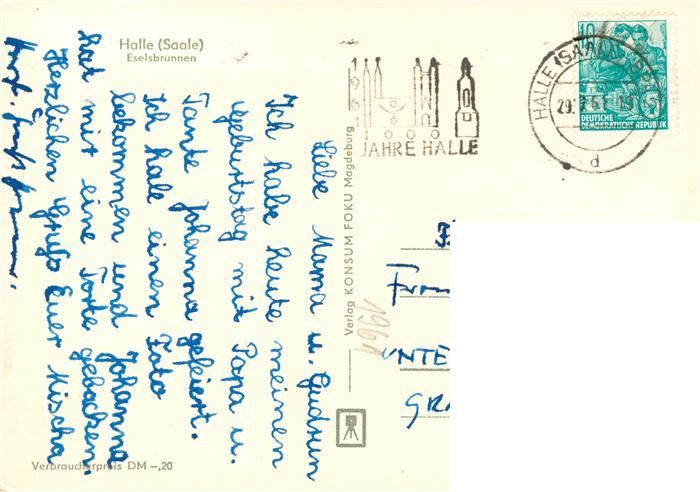 Halle (Saale)
Eselsbrunnen
Liebe Mama u. Gudrun
Ich habe heute meinen
Geburtstag mit Papa u.
Tante Johanna gefeiert.
Ich habe einen Foto
bekommen und Johanna
hat mir eine Torte gebacken.
Herzlichen Gruß Euer Mischa
Verbraucherpreis DM –,20
Verlag KONSUM FOKU Magdeburg
1961
1961
1000
JAHRE HALLE
HALLE (SAALE)
29.
10
DEUTSCHE
DEMOKRATISCHE REPUBLIK
d
UNTE
GRA